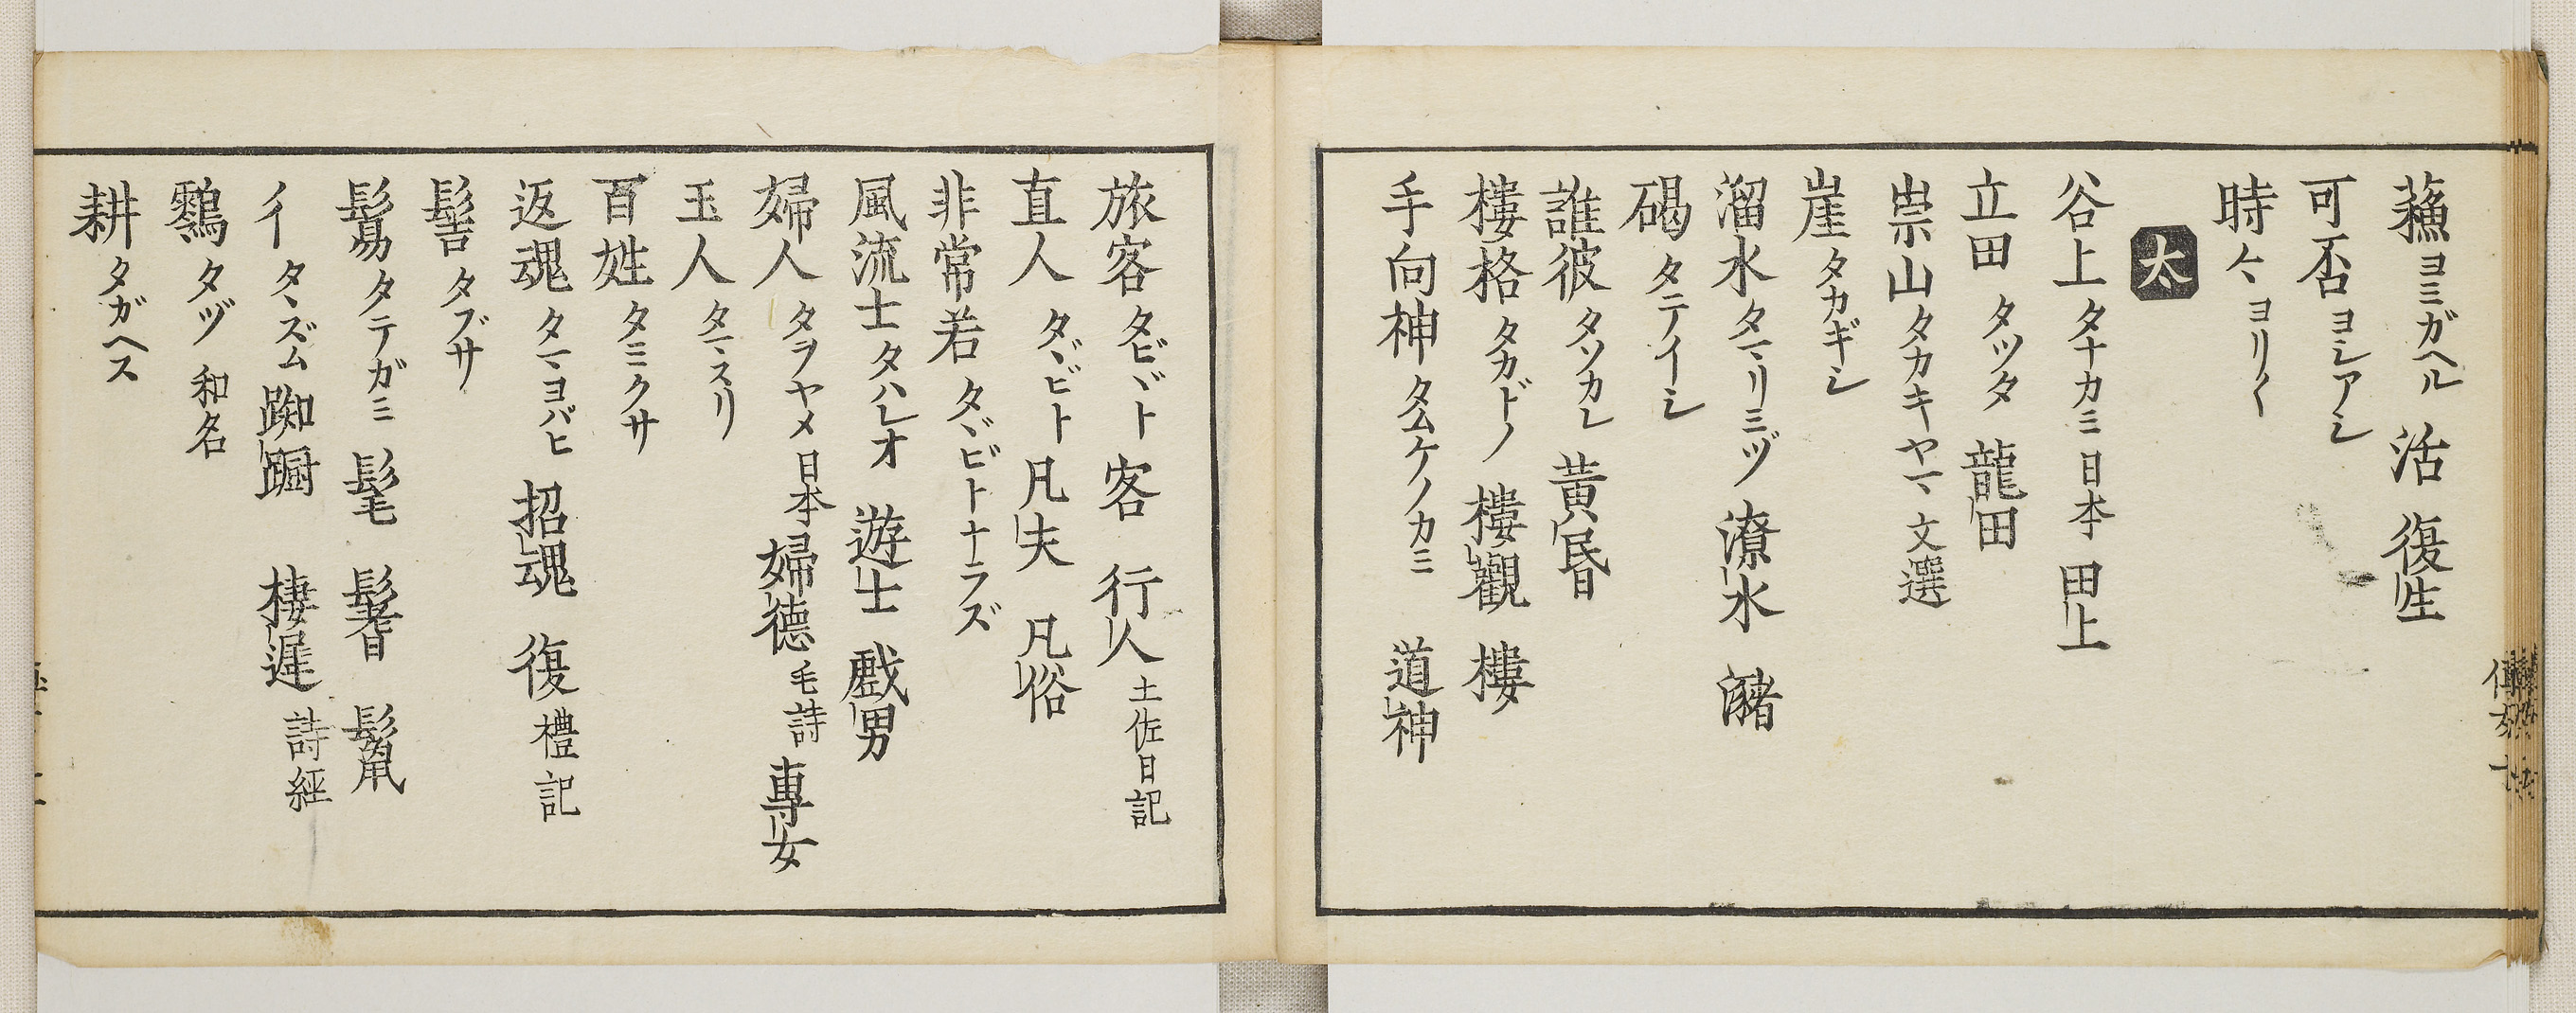 蘓 ヨミガヘル 活 復生
可否 ヨシアシ
時々 ヨリ〱
太
谷上 タナカミ 日本 田上
立田 タツタ 龍田
崇山 タカキヤマ 文選
崖 タカギシ
溜水 タマリミヅ 潦水 瀦
碣 タテイシ
誰彼 タソカレ 黄昏
樓格 タカドノ 樓觀 樓
手向神 タムケノカミ 道神
旅客 タビヾト 客 行人 土佐日記
直人 タヾビト 凡夫 凡俗
非常若 タヾビトナラズ
風流士 タハレオ 遊士 戯男
婦人 タヲヤメ 日本 婦德 毛詩 專女
玉人 タマスリ
百姓 タミクサ
返魂 タマヨバヒ 招魂 復 禮記
髻 タブサ
鬄 タテガミ 髦 鬐 鬣
彳 タヽズム 踟蹰 棲遲 詩經
鸖 タヅ 和名
耕 タガヘス